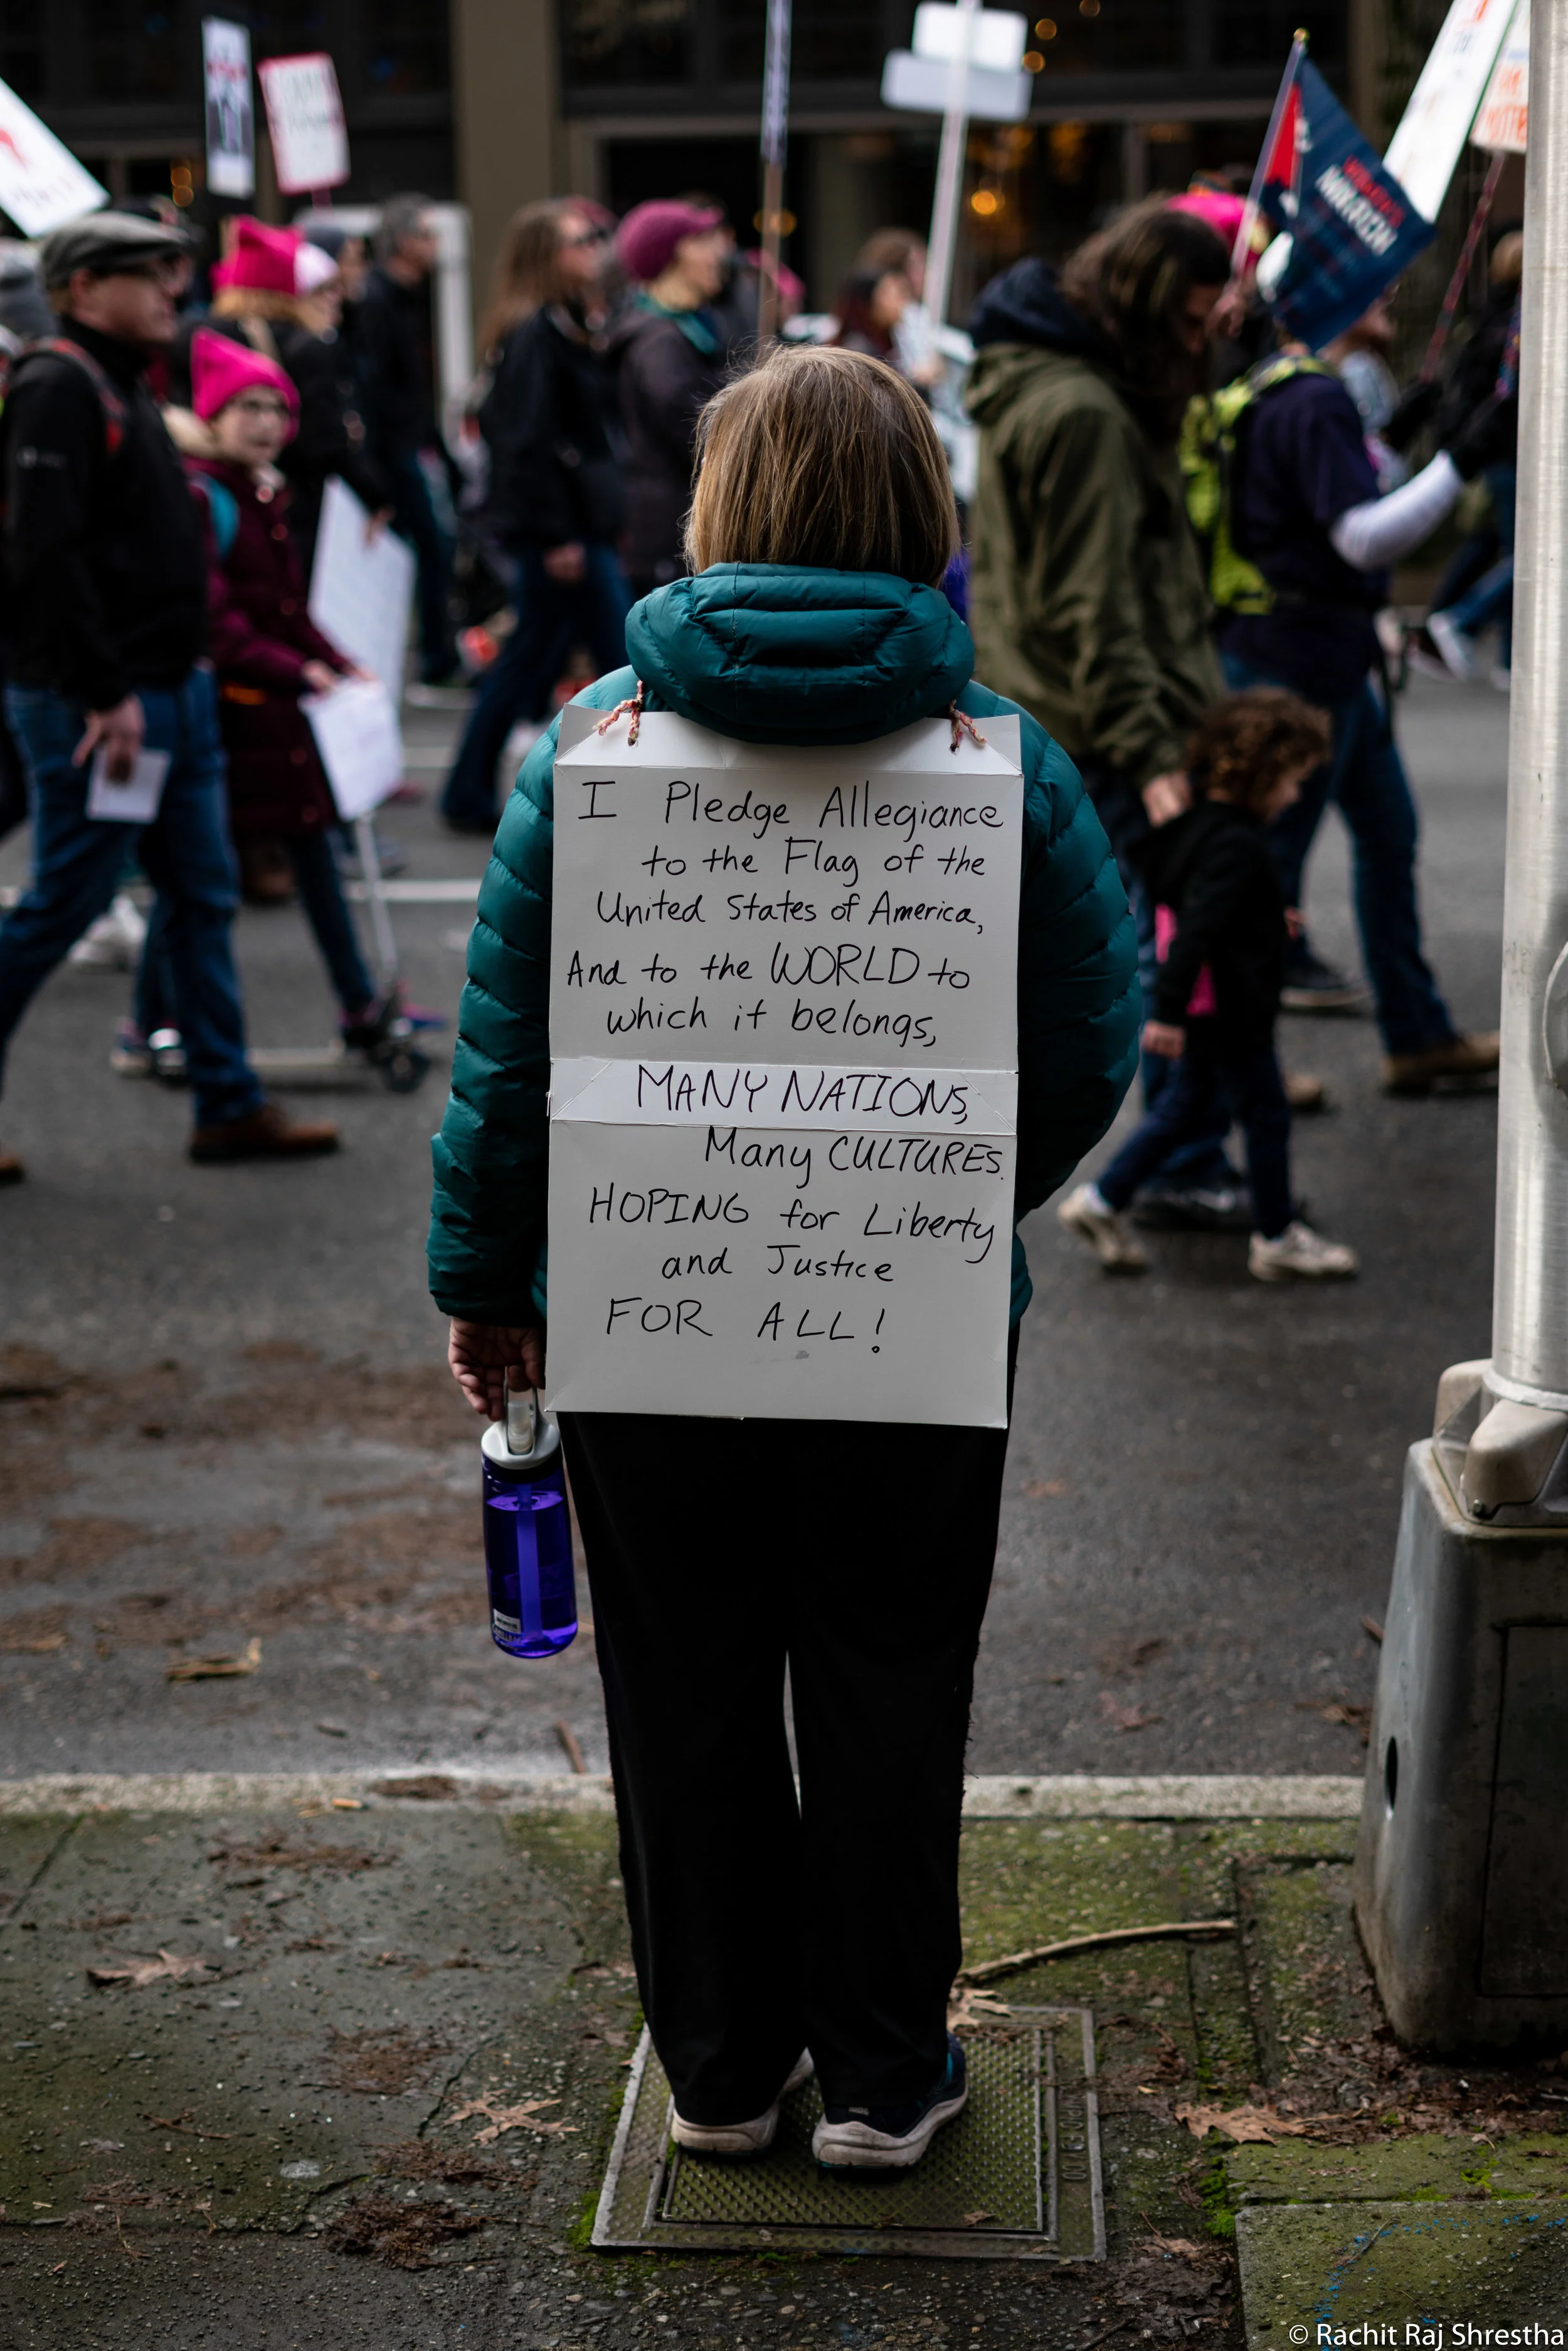 I Pledge Allegiance
to the Flag of the
United States of America,
And to the WORLD to
which it belongs,
MANY NATIONS,
Many CULTURES.
HOPING for Liberty
and Justice
FOR ALL!
© Rachit Raj Shrestha